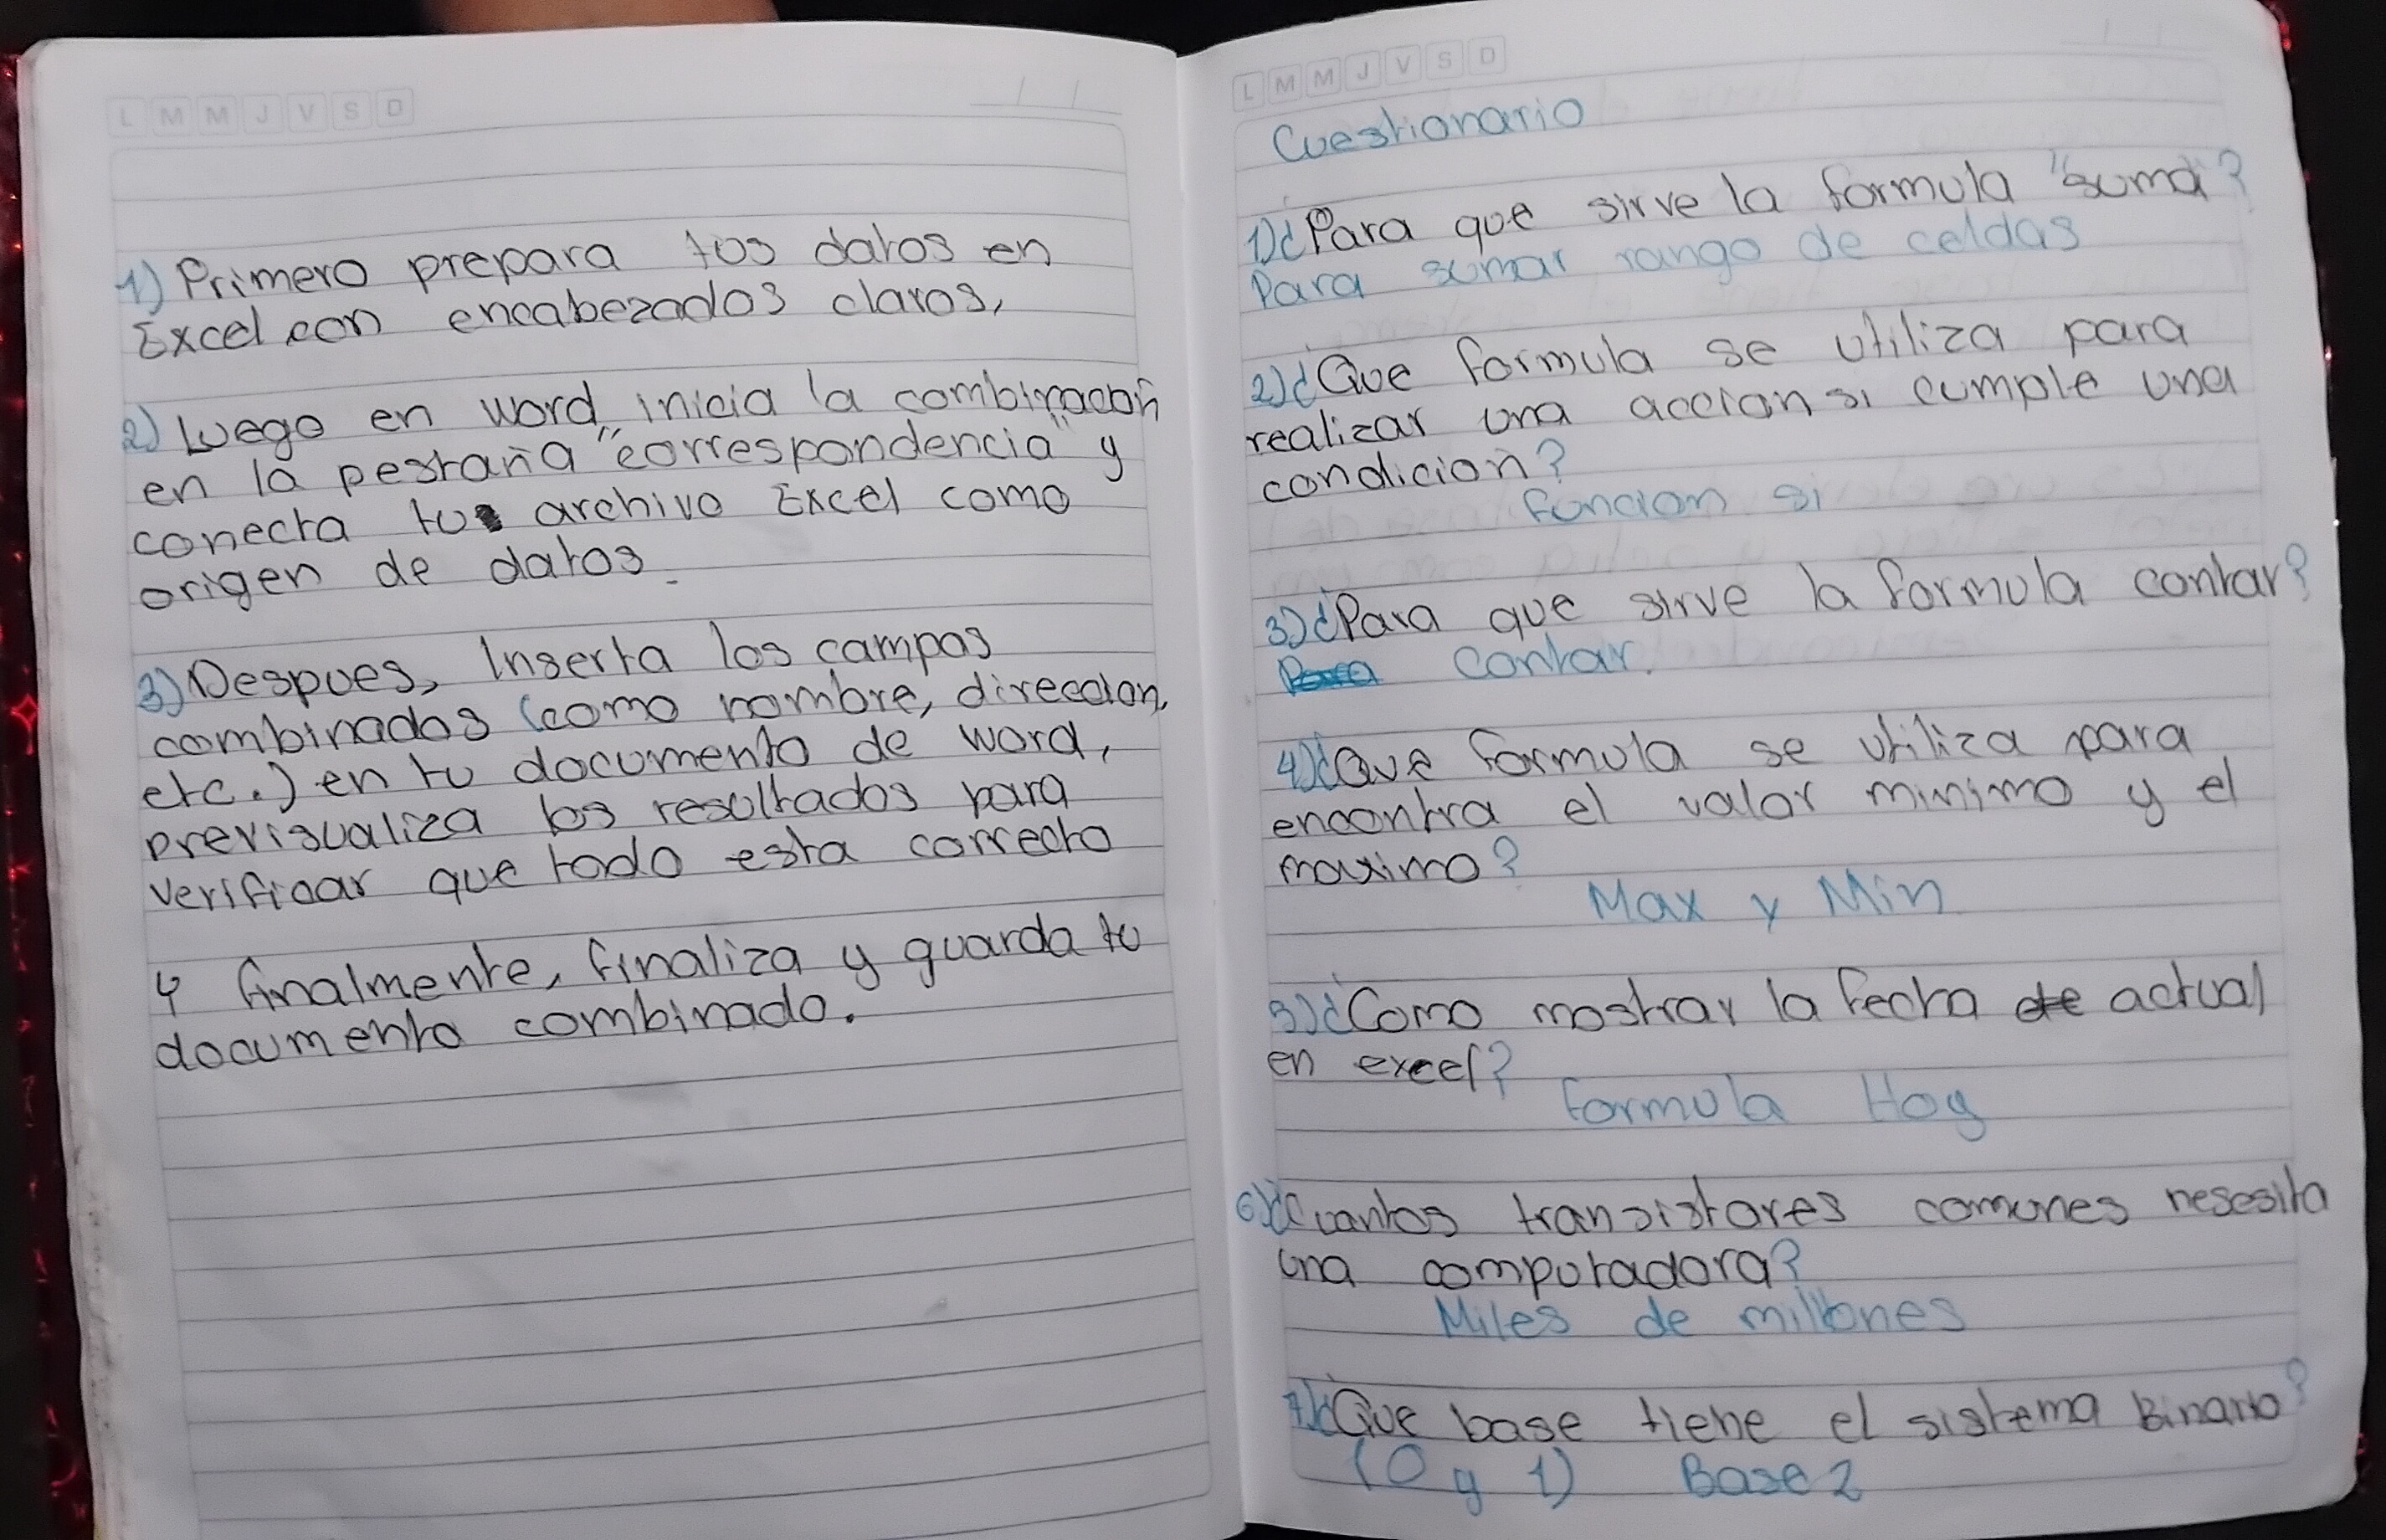 L M M J V S D
1) Primero prepara tus datos en
Excel con encabezados claros,
2) Luego en word, inicia la combinacion
en la pestaña "correspondencia" y
conecta tu archivo Excel como
origen de datos.
3) Despues, Inserta los campos
combinados (como nombre, direccion,
etc.) en tu documento de word,
previsualiza los resultados para
verificar que todo esta correcto
4 finalmente, finaliza y guarda tu
documento combinado.
L M M J V S D
Cuestionario
1) ¿Para que sirve la formula "suma"?
Para sumar rango de celdas
2) ¿Que formula se utiliza para
realizar una accion si cumple una
condicion?
funcion si
3) ¿Para que sirve la formula contar?
contar.
4) ¿Que formula se utiliza para
encontra el valor minimo y el
maximo?
Max y Min
5) ¿Como mostrar la fecha de actual
en excel?
formula Hoy
6) ¿Cuantos transistores comunes nesesita
una computadora?
Miles de millones
7) ¿Que base tiene el sistema Binario?
(0 y 1) Base 2